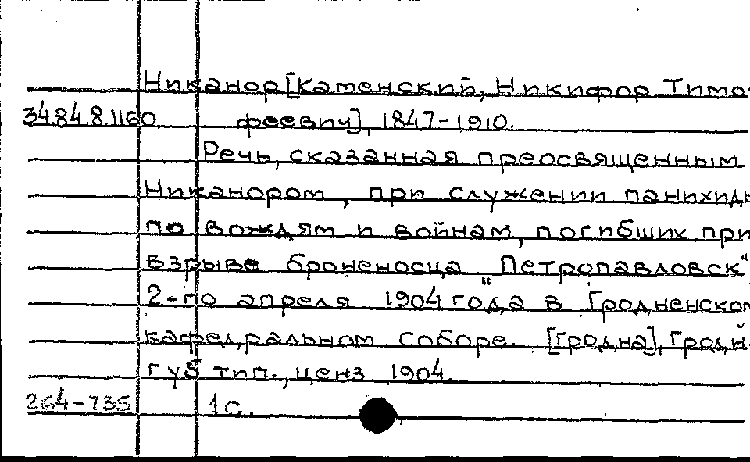 Никанор [Каменский, Никифор Тимо-
34848.1160 феевич], 1847-1910.
Речь, сказанная преосвященным
Никанором, при служении панихиды
по вождям и войнам, погибших при
взрыве броненосца "Петропавловск"
2-го апреля 1904 года в Гродненском
кафедральном соборе. [Гродна], Гродн.
губ тип., ценз 1904.
264-735 1 с.